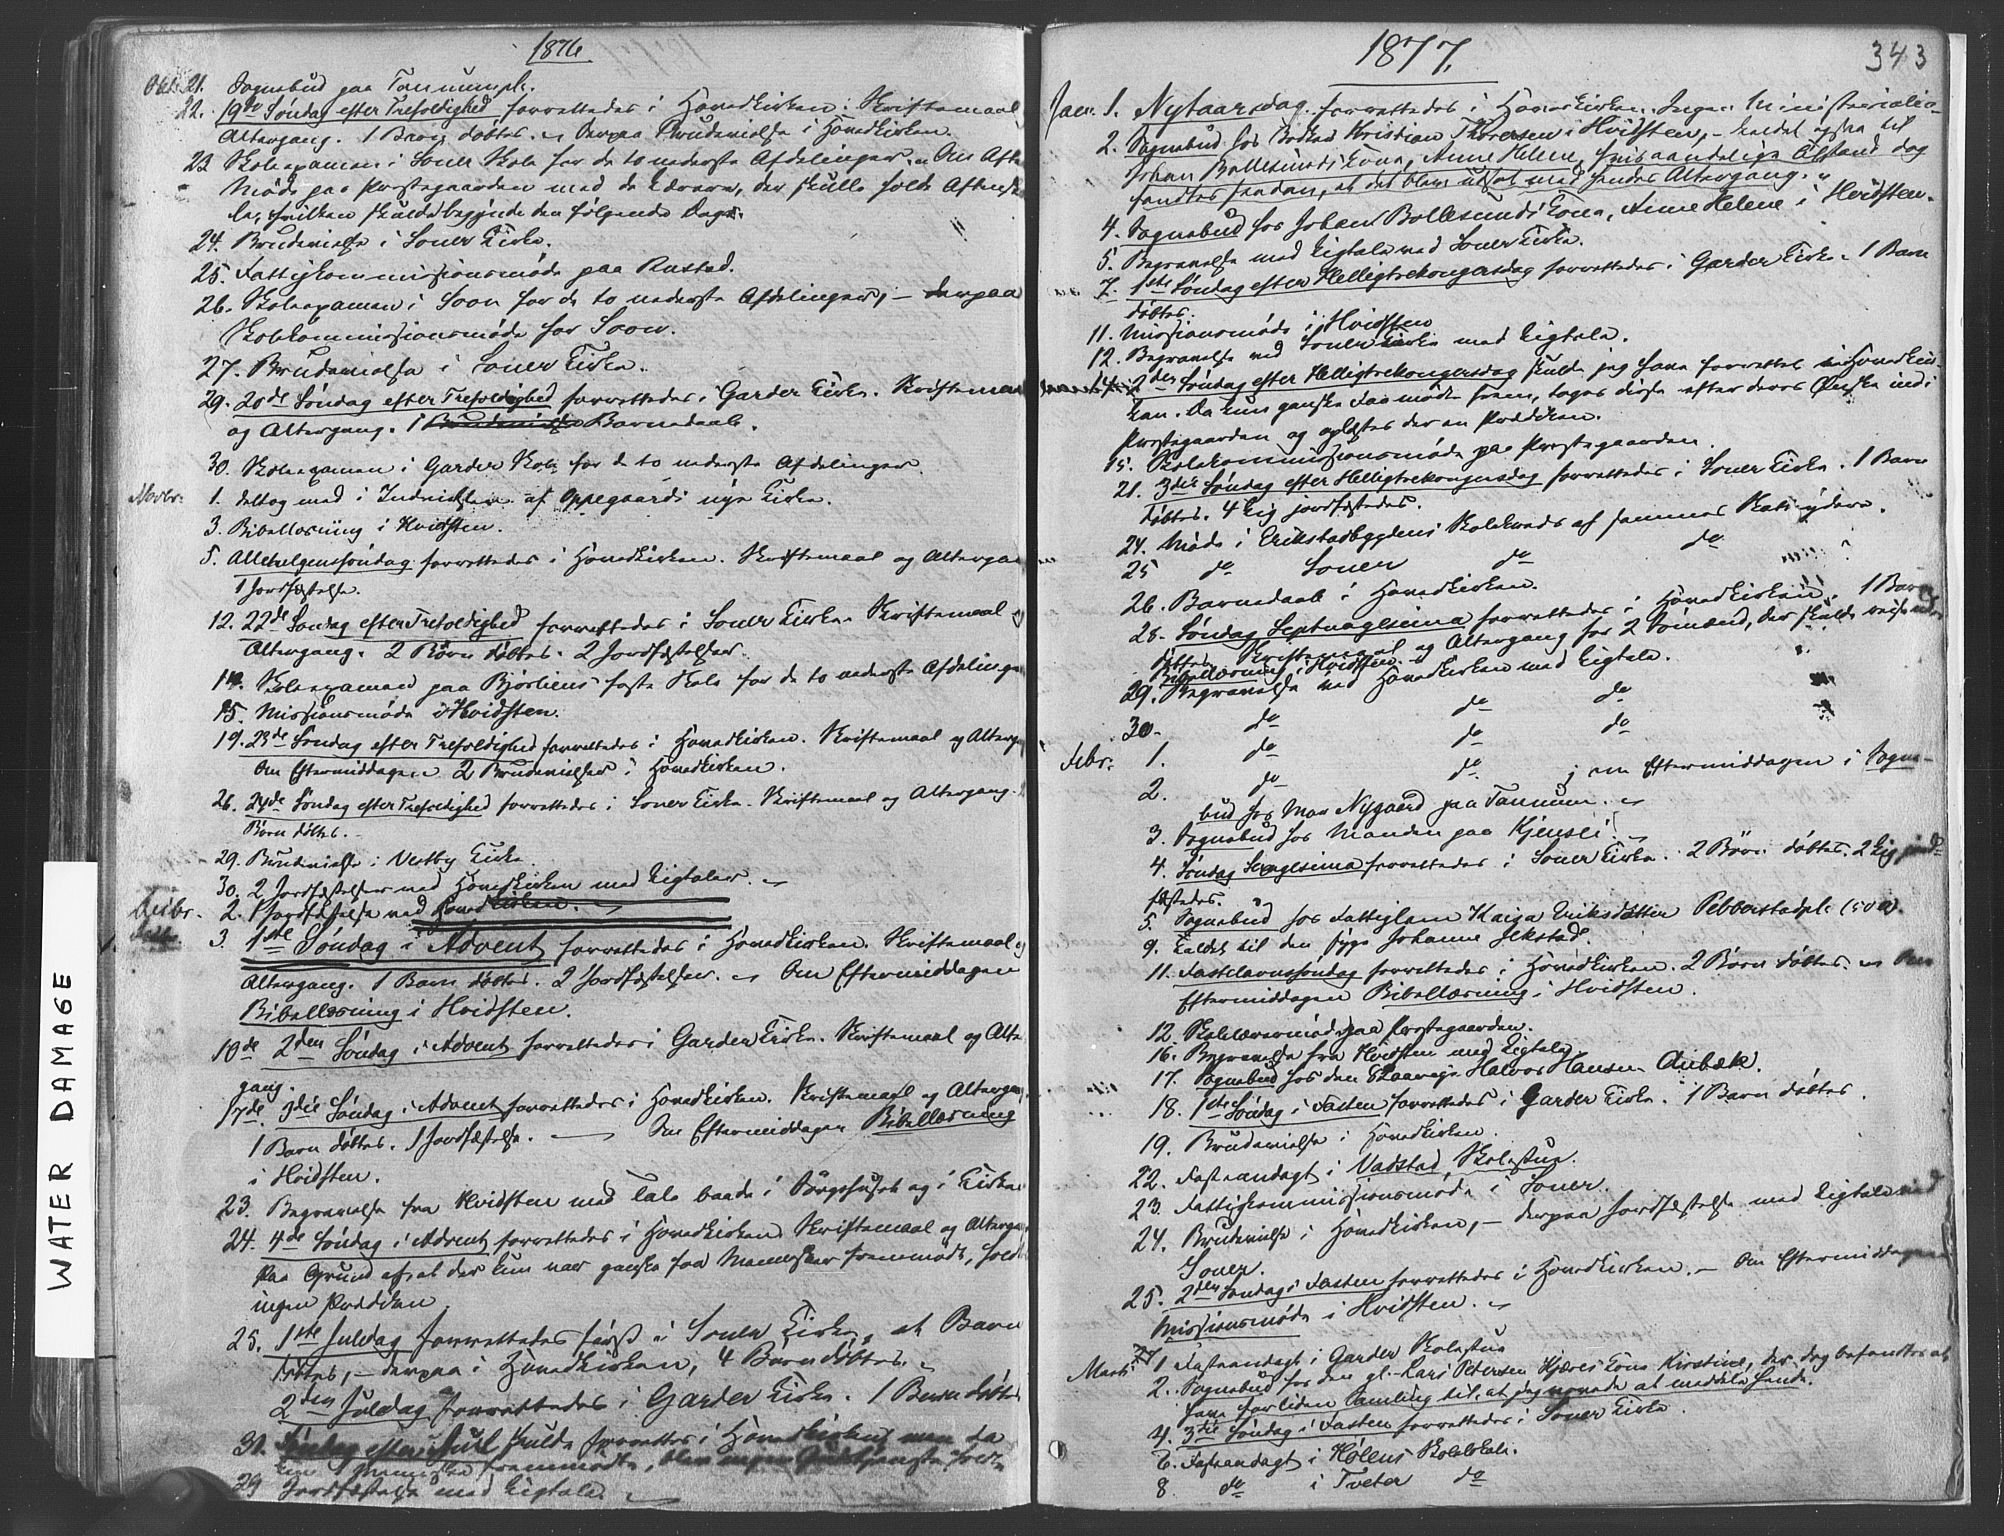 1876.
Oktr. 21. Sognebud paa Tannumpl.
22. 19de Søndag efter Trefoldighed forrettedes i Hovedkirken. Skriftemaal
Altergang. 1 Barn døbtes. Derpaa Brudevielse i Hovedkirken.
23 Skoleexamen i Soner Skole for de to nederste Afdelinger. Om Aft
Møde paa Prestegaarden med de Lærere, der skulle holde Aftensko
le, hvilken skulde begynde den følgende Dag.
24. Brudevielse i Soner Kirke.
25. Fattigkommissionsmøde paa Rustad.
26. Skoleexamen i Soon for de to nederste Afdelinger, – derpaa
Skolekommissionsmøde for Soon.
27. Brudevielse i Soner Kirke.
29. 20de Søndag efter Trefoldighed forrettedes i Garder Kirke. Skriftemaa
og Altergang. 1 Barnedaab.
30. Skoleexamen i Garder Skole for de to nederste Afdelinger.
Novbr. 1. deltog med i Indvielsen af Oppegaards nye Kirke.
3. Bibellæsning i Hvidsten.
5. Allehelgenssøndag forrettedes i Hovedkirken. Skriftemaal og Altergan
1 Jordfæstelse.
12. 22de Søndag efter Trefoldighed forrettedes i Soner Kirke. Skriftemaal
Altergang. 2 Børn døbtes. 2 Jordfæstelser.
14. Skoleexamen paa Bjørliens faste Skole for de to nederste Afdelinge
15. Missionsmøde i Hvidsten.
19. 23de Søndag efter Trefoldighed forrettedes i Hovedkirken. Skriftemaal og Alterga
Om Eftermiddagen 2 Brudevielser i Hovedkirken.
26. 24de Søndag efter Trefoldighed forrettedes i Soner Kirke. Skriftemaal og Altergang.
Børn døbtes.
29. Brudevielse i Vestby Kirke.
30. 2 Jordfæstelser ved Hovedkirken med Ligtaler.
Decbr. 2. 1 Jordfæstelse ved Hovedkirken.
3. 1ste Søndag i Advent forrettedes i Hovedkirken. Skriftemaal
Altergang. 1 Barn døbtes. 2 Jordfæstelser. Om Eftermiddagen
Bibellæsning i Hvidsten.
10de 2den Søndag i Advent forrettedes i Garder Kirke. Skriftemaal og Alter
gang.
17de. 3die Søndag i Advent forrettedes i Hovedkirken. Skriftemaal og Altergan
1 Barn døbtes. 1 Jordfæstelse. — Om Eftermiddagen Bibellæsning
i Hvidsten.
23. Begravelse fra Hvidsten med Tale baade i Sørgehuset og i Kirke
24. 4de Søndag i Advent forrettedes i Hovedkirken Skriftemaal og Alterga
Paa Grund af, at der kun var ganske faa Mennesker fremmødt, holdt
ingen Prædiken
25. 1ste Juledag forrettedes først i Soner Kirke, et Barn
døbtes, – derpaa i Hovedkirken, 4 Børn døbtes.
2den Juledag forrettedes i Garder Kirke. 1 Barn døbtes
31. Søndag efter Juul skulde forrettes i Hovedkirken, men da
kun 1 Menneske fremmødte, blev ingen Gudstjeneste holdt
29 Jordfæstelse med Ligtale.
1877. 343
Jan. 1. Nytaarsdag forrettedes i Hovedkirken. Ingen Ministerialia
2. Sognebud hos Kristian Thoresen i Hvidsten, – kaldet ogsaa til
Johan Bollesunds Kone, Anne Helene, hvis aandelige Tilstand dog
fandtes saadan, at det blev udsat med hendes Altergang.
4. Sognebud hos Johan Bollesunds Kone, Anne Helene i Hvidsten.
5. Begravelse med Ligtale ved Soner Kirke.
7. 1ste Søndag efter Helligtrekongersdag forrettedes i Garder Kirke. 1 Barn
døbtes.
11. Missionsmøde i Hvidsten
12. Begravelse ved Soner Kirke med Ligtale.
14. 2den Søndag efter Helligtrekongersdag skulde jeg have forrettet i Hovedkir-
ken. Da kun ganske Faa mødte frem, toges disse efter deres Ønske ind i
Prestegaarden og oplæstes der en Prædiken.
15. Skolekommissionsmøde paa Prestegaarden.
21. 3die Søndag efter Helligtrekongersdag forrettedes i Soner Kirke. 1 Barn
døbtes. 4 Lig jordfæstedes.
24. Møde i Erikstadbygdens Skolekreds af sammes Skatteydere.
25 do Soner do do
26. Barnedaab i Hovedkirken.
28. Søndag Septuagesima forrettedes i Hovedkirken. 1 Barn
døbtes. Skriftemaal og Altergang for 2 Sømænd, der skulde reise
Bibellæsning i Hvidsten.
29. Begravelse ved Hovedkirken med Ligtale.
30. do do do
Febr. 1. do do do
2. do do ; om Eftermiddagen i Sogne-
bud hos Mor Nygaard paa Tannum.
3. Sognebud hos Manden paa Kjensli.
4. Søndag Sexagesima forrettedes i Soner Kirke. 2 Børn døbtes. 2 Lig jord-
fæstedes.
5. Sognebud hos Fattiglem Kaisa Eriksdotter Pebberstadpl.
9. Kaldet til den syge Johanne Jekstad.
11. Fastelavnssøndag forrettedes i Hovedkirken. 2 Børn døbtes. Om
Eftermiddagen Bibellæsning i Hvidsten.
12. Skolelærermøde paa Prestegaarden.
16. Begravelse fra Hvidsten med Ligtale
17. Sognebud hos den Halvor Hansen Aubæk.
18. 1ste Søndag i Fasten forrettedes i Garder Kirke. 1 Barn døbtes.
19. Brudevielse i Hovedkirken.
22. Fasteandagt i Vadstad Skolestue.
23. Fattigkommissionsmøde i Soner.
24. Brudevielse i Hovedkirken, – derpaa Jordfæstelse med Ligtale ved
Soner.
25. 2den Søndag i Fasten forrettedes i Hovedkirken. – Om Eftermiddagen
Missionsmøde i Hvidsten.
Marts 1 Fasteandagt i Garder Skolestue
2. Sognebud hos den gl. Lars Petersen Kjærs Kone Kirstine, der dog befandtes at
have for liden Samling til, at jeg vovede at meddele hende.
4. 3die Søndag i Fasten forrettedes i Soner Kirke.
6. Fasteandagt i Hølens Skolelokale.
8 do i Tveter do
WATER DAMAGE